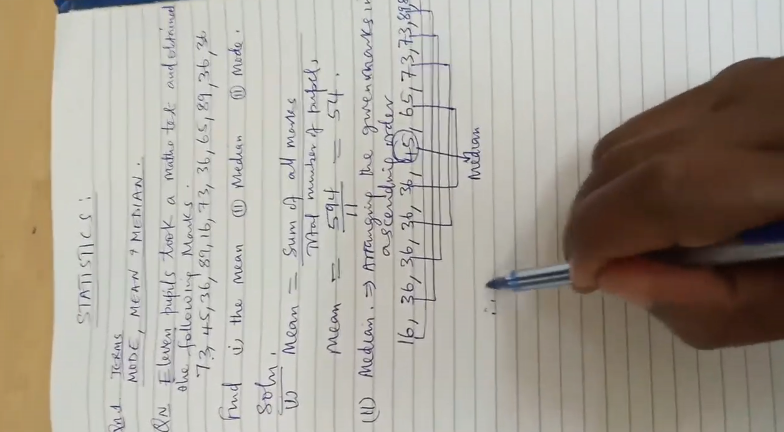 STATISTICS:
TERMS
MODE, MEAN & MEDIAN.
QN Eleven pupils took a maths test and obtained
the following marks.
73, 45, 36, 89, 16, 73, 36, 65, 89, 36, 36
Find i) the mean ii) Median iii) Mode.
Soln.
(i) Mean = Sum of all marks
Total number of pupils
Mean = 594 = 54.
11
(ii) Median. ⇒ Arranging the given marks in
ascending order
16, 36, 36, 36, 36, 45, 65, 73, 73, 89,
Median
∴